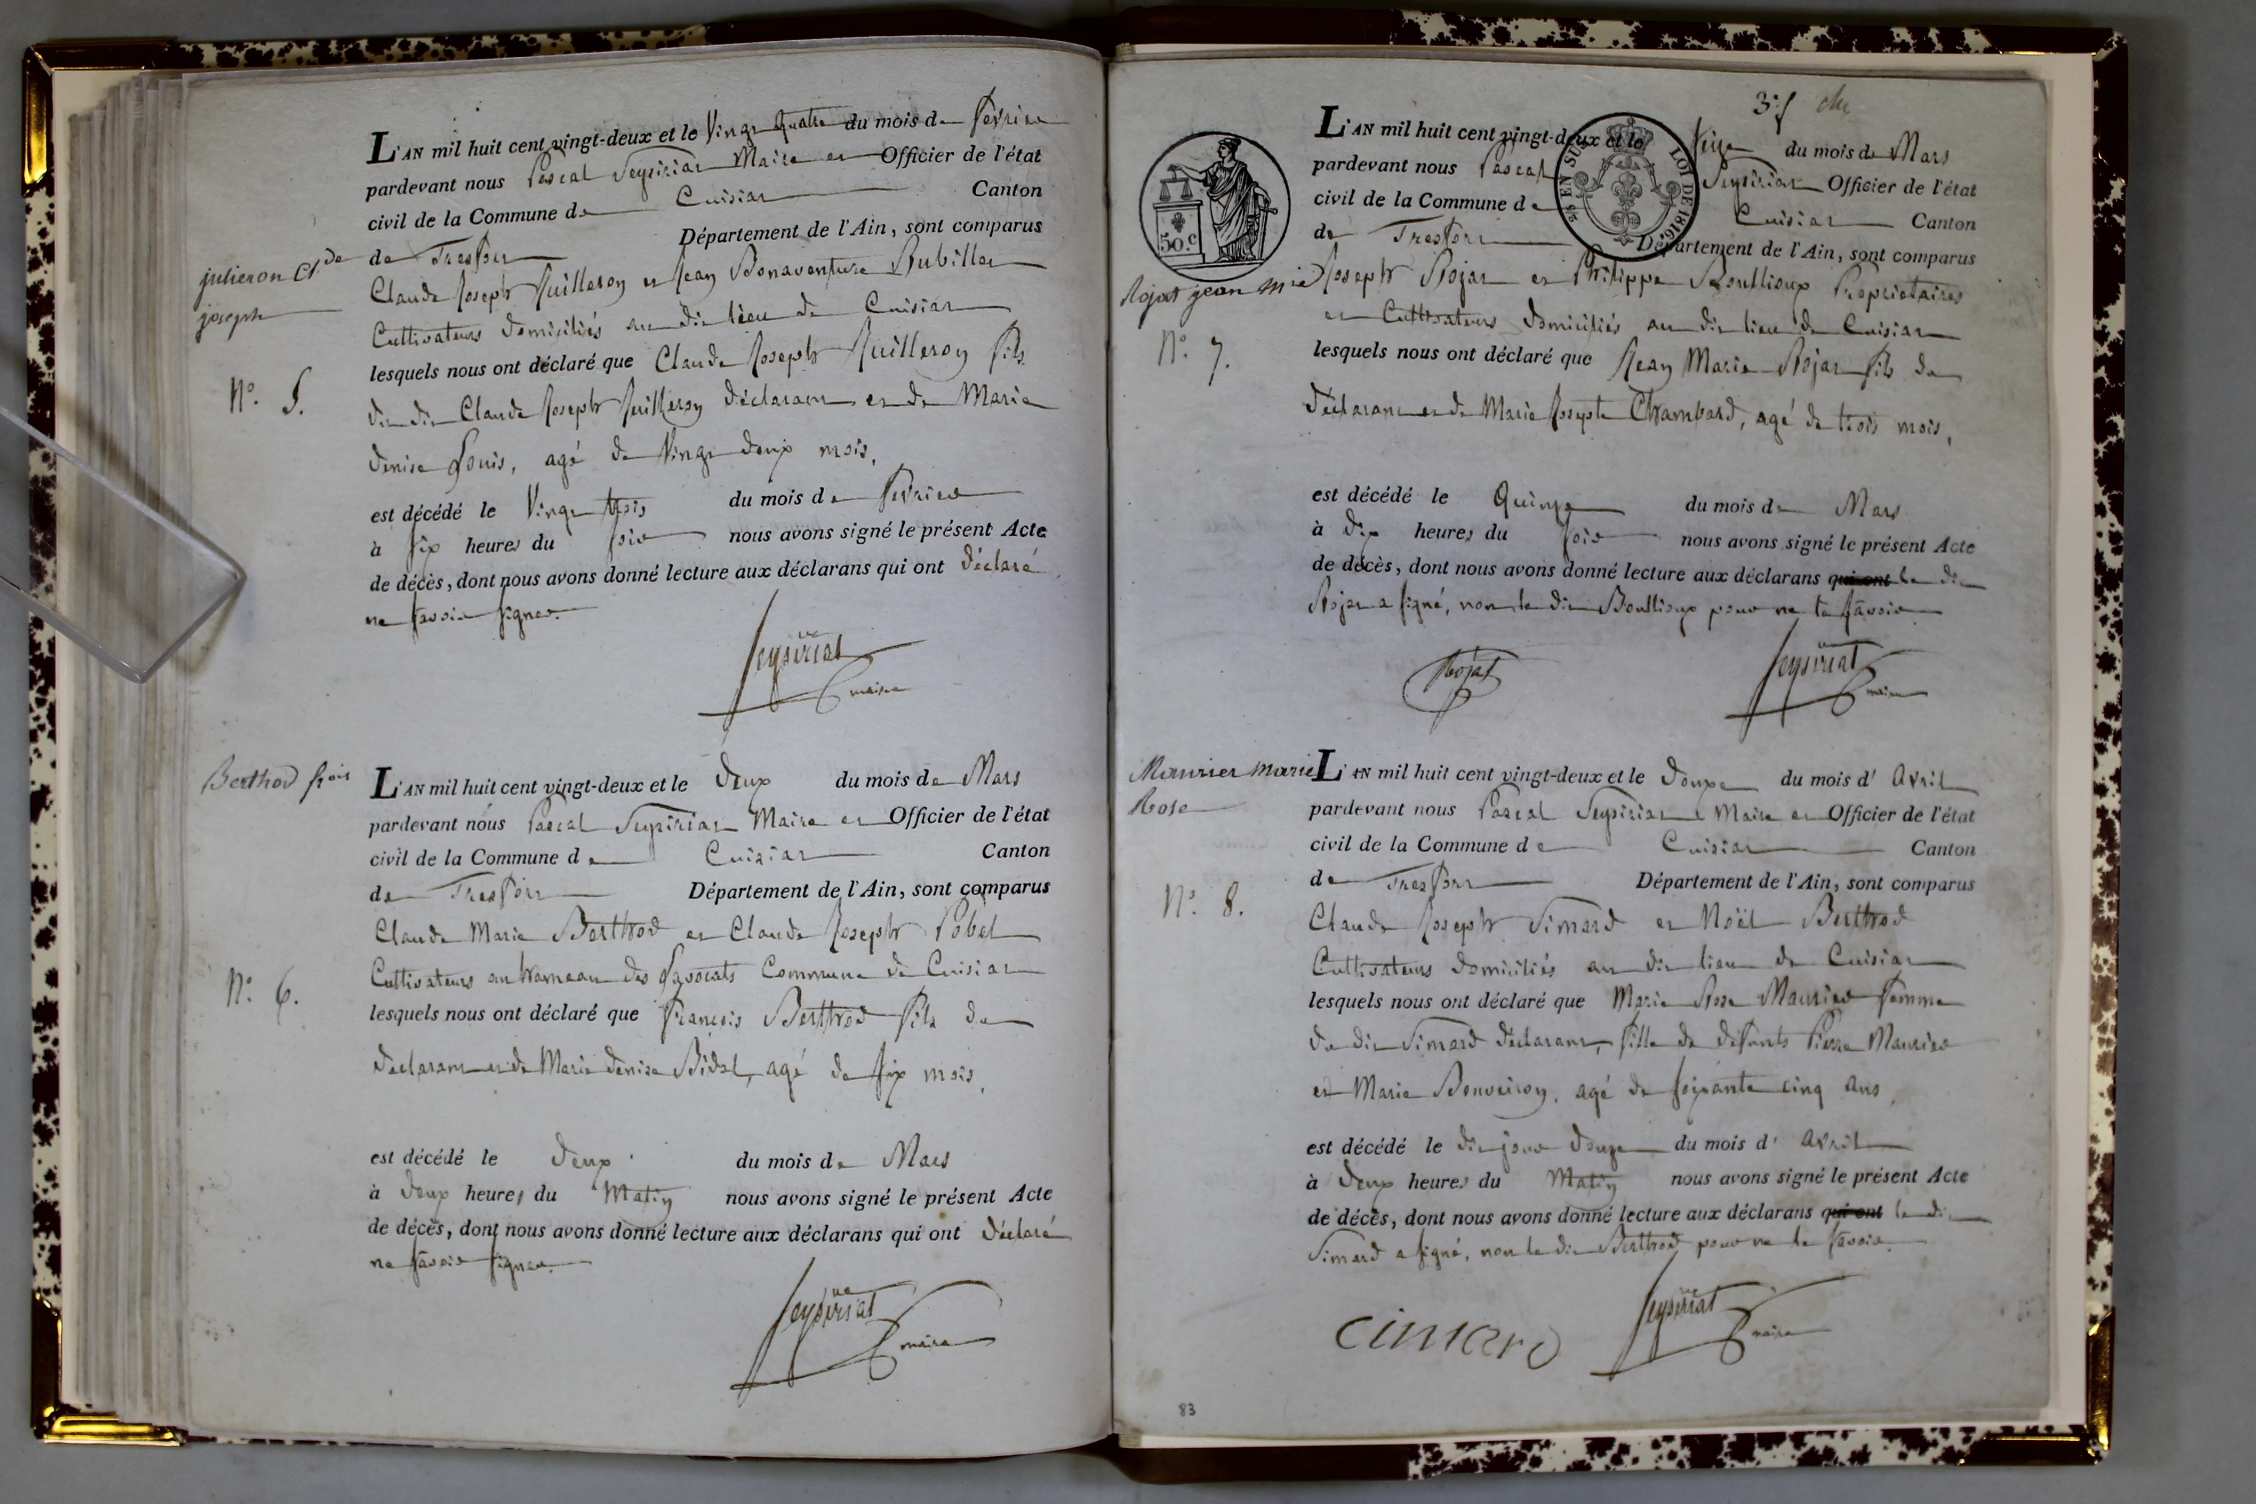 julieron Cl de
joseph
N.º 5.
L'AN mil huit cent vingt-deux et le Vingt quatre du mois de fevrier
pardevant nous Pascal Seysiriat Maire et Officier de l'état
civil de la Commune de Cuisiat Canton
de Treffort Département de l'Ain, sont comparus
Claude Joseph Juilleron et Jean Bonaventure Rubillet
Cultivateurs domiciliés au dit lieu de Cuisiat
lesquels nous ont déclaré que Claude Joseph Juilleron fils
du dit Claude Joseph Juilleron déclarant et de Marie
denise Louis, agé de Vingt deux mois,
est décédé le Vingt trois du mois de fevrier
à six heures du soir nous avons signé le présent Acte
de décès, dont nous avons donné lecture aux déclarans qui ont déclaré
ne savoir signer.
Seysiriat
maire
Berthod frois
N.º 6.
L'AN mil huit cent vingt-deux et le deux du mois de Mars
pardevant nous Pascal Seysiriat Maire et Officier de l'état
civil de la Commune de Cuisiat Canton
de Treffort Département de l'Ain, sont comparus
Claude Marie Berthod et Claude Joseph Pobel
Cultivateurs au hameau des Commune de Cuisiat
lesquels nous ont déclaré que francois Berthod fils du
déclarant et de Marie denise Bidal, agé de six mois,
est décédé le deux du mois de Mars
à deux heures du Matin nous avons signé le présent Acte
de décès, dont nous avons donné lecture aux déclarans qui ont déclaré
ne savoir signer.
Seysiriat
maire
3.e f
50.c
25 EN SUS LOI DE 1816.
Rojat jean mie
N.º 7.
L'AN mil huit cent vingt-deux et le Seize du mois de Mars
pardevant nous Pascal Seysiriat Officier de l'état
civil de la Commune de Cuisiat Canton
de Treffort Département de l'Ain, sont comparus
Joseph Rojat et Philippe Boullioux Propriétaires
et Cultivateurs domiciliés au dit lieu de Cuisiat
lesquels nous ont déclaré que Jean Marie Rojat fils du
déclarant et de Marie Josephte Chambard, agé de trois mois,
est décédé le Quinze du mois de Mars
à dix heures du soir nous avons signé le présent Acte
de décès, dont nous avons donné lecture aux déclarans qui ont le dit
Rojat a signé, non le dit Boullioux pour ne le savoir
Rojat
Seysiriat
maire
Maurier marie
Rose
N.º 8.
L'AN mil huit cent vingt-deux et le douze du mois d' Avril
pardevant nous Pascal Seysiriat Maire et Officier de l'état
civil de la Commune de Cuisiat Canton
de Treffort Département de l'Ain, sont comparus
Claude Joseph Simard et Noël Berthod
Cultivateurs domiciliés au dit lieu de Cuisiat
lesquels nous ont déclaré que Marie Rose Maurier femme
du dit Simard déclarant, fille de defunts Pierre Maurier
et Marie Bonveiron, agé de soixante cinq ans,
est décédé le dit jour douze du mois d' Avril
à deux heures du Matin nous avons signé le présent Acte
de décès, dont nous avons donné lecture aux déclarans qui ont le dit
Simard a signé, non le dit Berthod pour ne le savoir.
Cimard
Seysiriat
maire
83